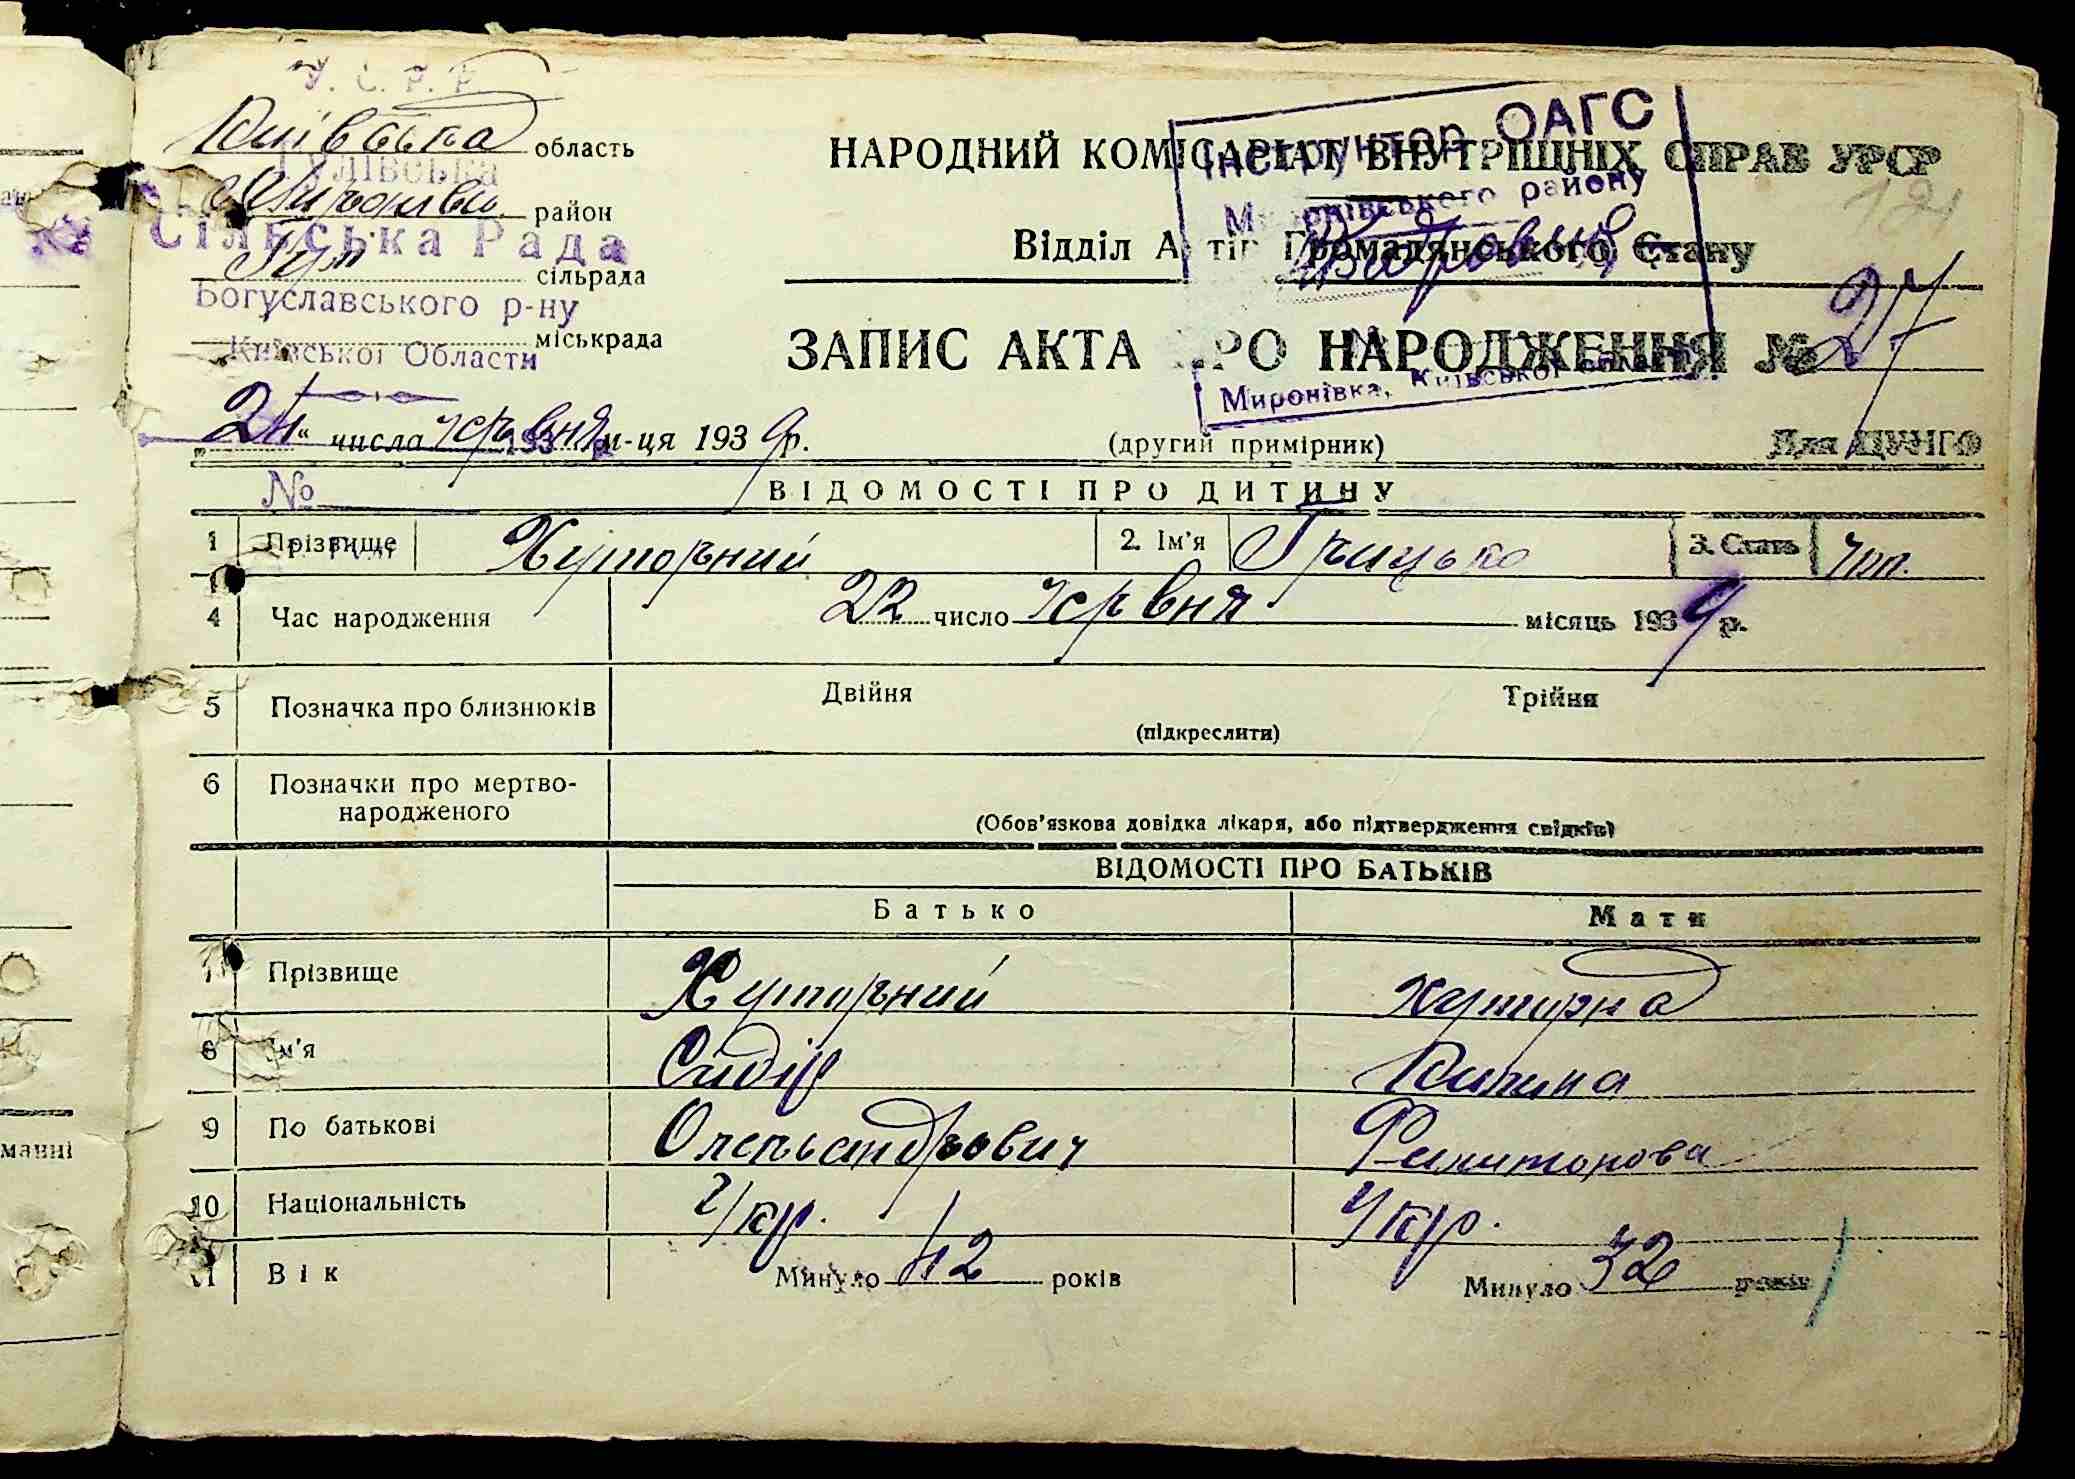 У. С. Р. Р.
Київська область
Гулівська
Миронівськ. район
Сільська Рада
Гул. сільрада
Богуславського р-ну
міськрада
Київської Области
НАРОДНИЙ КОМІСАРІАТ ВНУТРІШНІХ СПРАВ УРСР
Інструктор ОАГС
Миронівського району
121
Відділ Актів Громадянського Стану
ЗАПИС АКТА ПРО НАРОДЖЕННЯ № 27
Миронівка, Київської області
"24" числа червня м-ця 1939 р.
(другий примірник)
Для ЦУНГО
№
ВІДОМОСТІ ПРО ДИТИНУ
1 Прізвище Хуторний 2. Ім'я Грицько 3. Стать чол.
4 Час народження 22 число червня місяць 1939 р.
5 Позначка про близнюків Двійня Трійня
(підкреслити)
6 Позначки про мертво-
народженого
(Обов'язкова довідка лікаря, або підтвердження свідків)
ВІДОМОСТІ ПРО БАТЬКІВ
Батько Мати
7 Прізвище Хуторний Хуторна
8 Ім'я Сидір Килина
9 По батькові Олександрович
10 Національність Укр. Укр.
11 Вік Минуло 42 років Минуло 32 років
манні